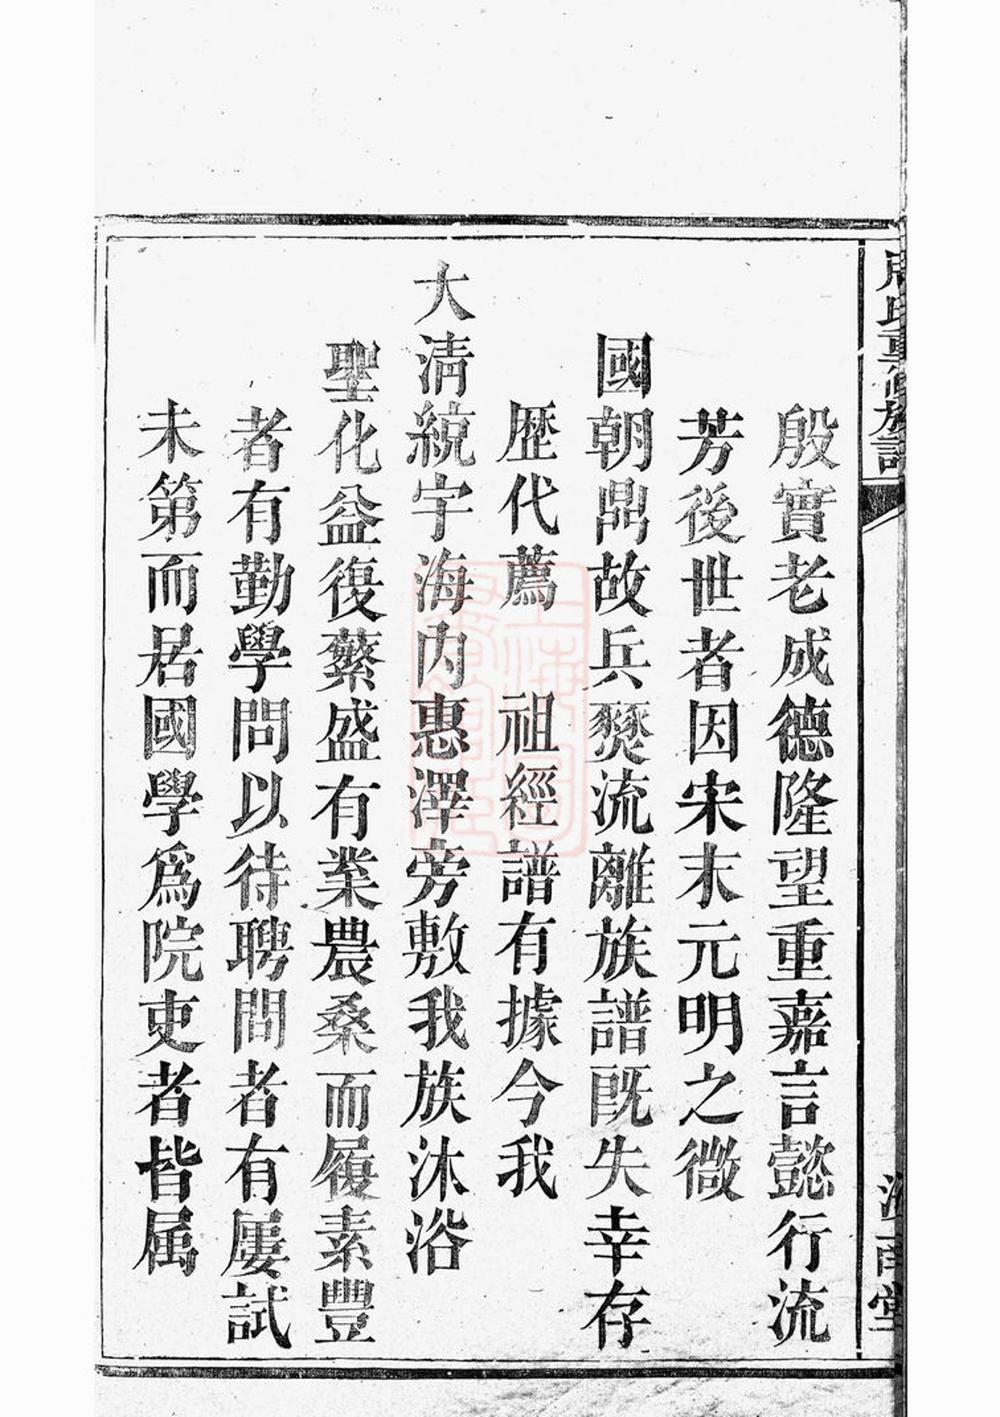 周氏重修族譜
殷實老成德隆望重嘉言懿行流
芳後世者因宋末元明之微
國朝鼎故兵燹流離族譜既失幸存
歷代薦 祖經譜有據今我
大清統宇海内惠澤旁敷我族沐浴
聖化益復蘩盛有業農桑而履素豐
者有勤學問以待聘問者有屢試
未第而居國學爲院吏者皆属